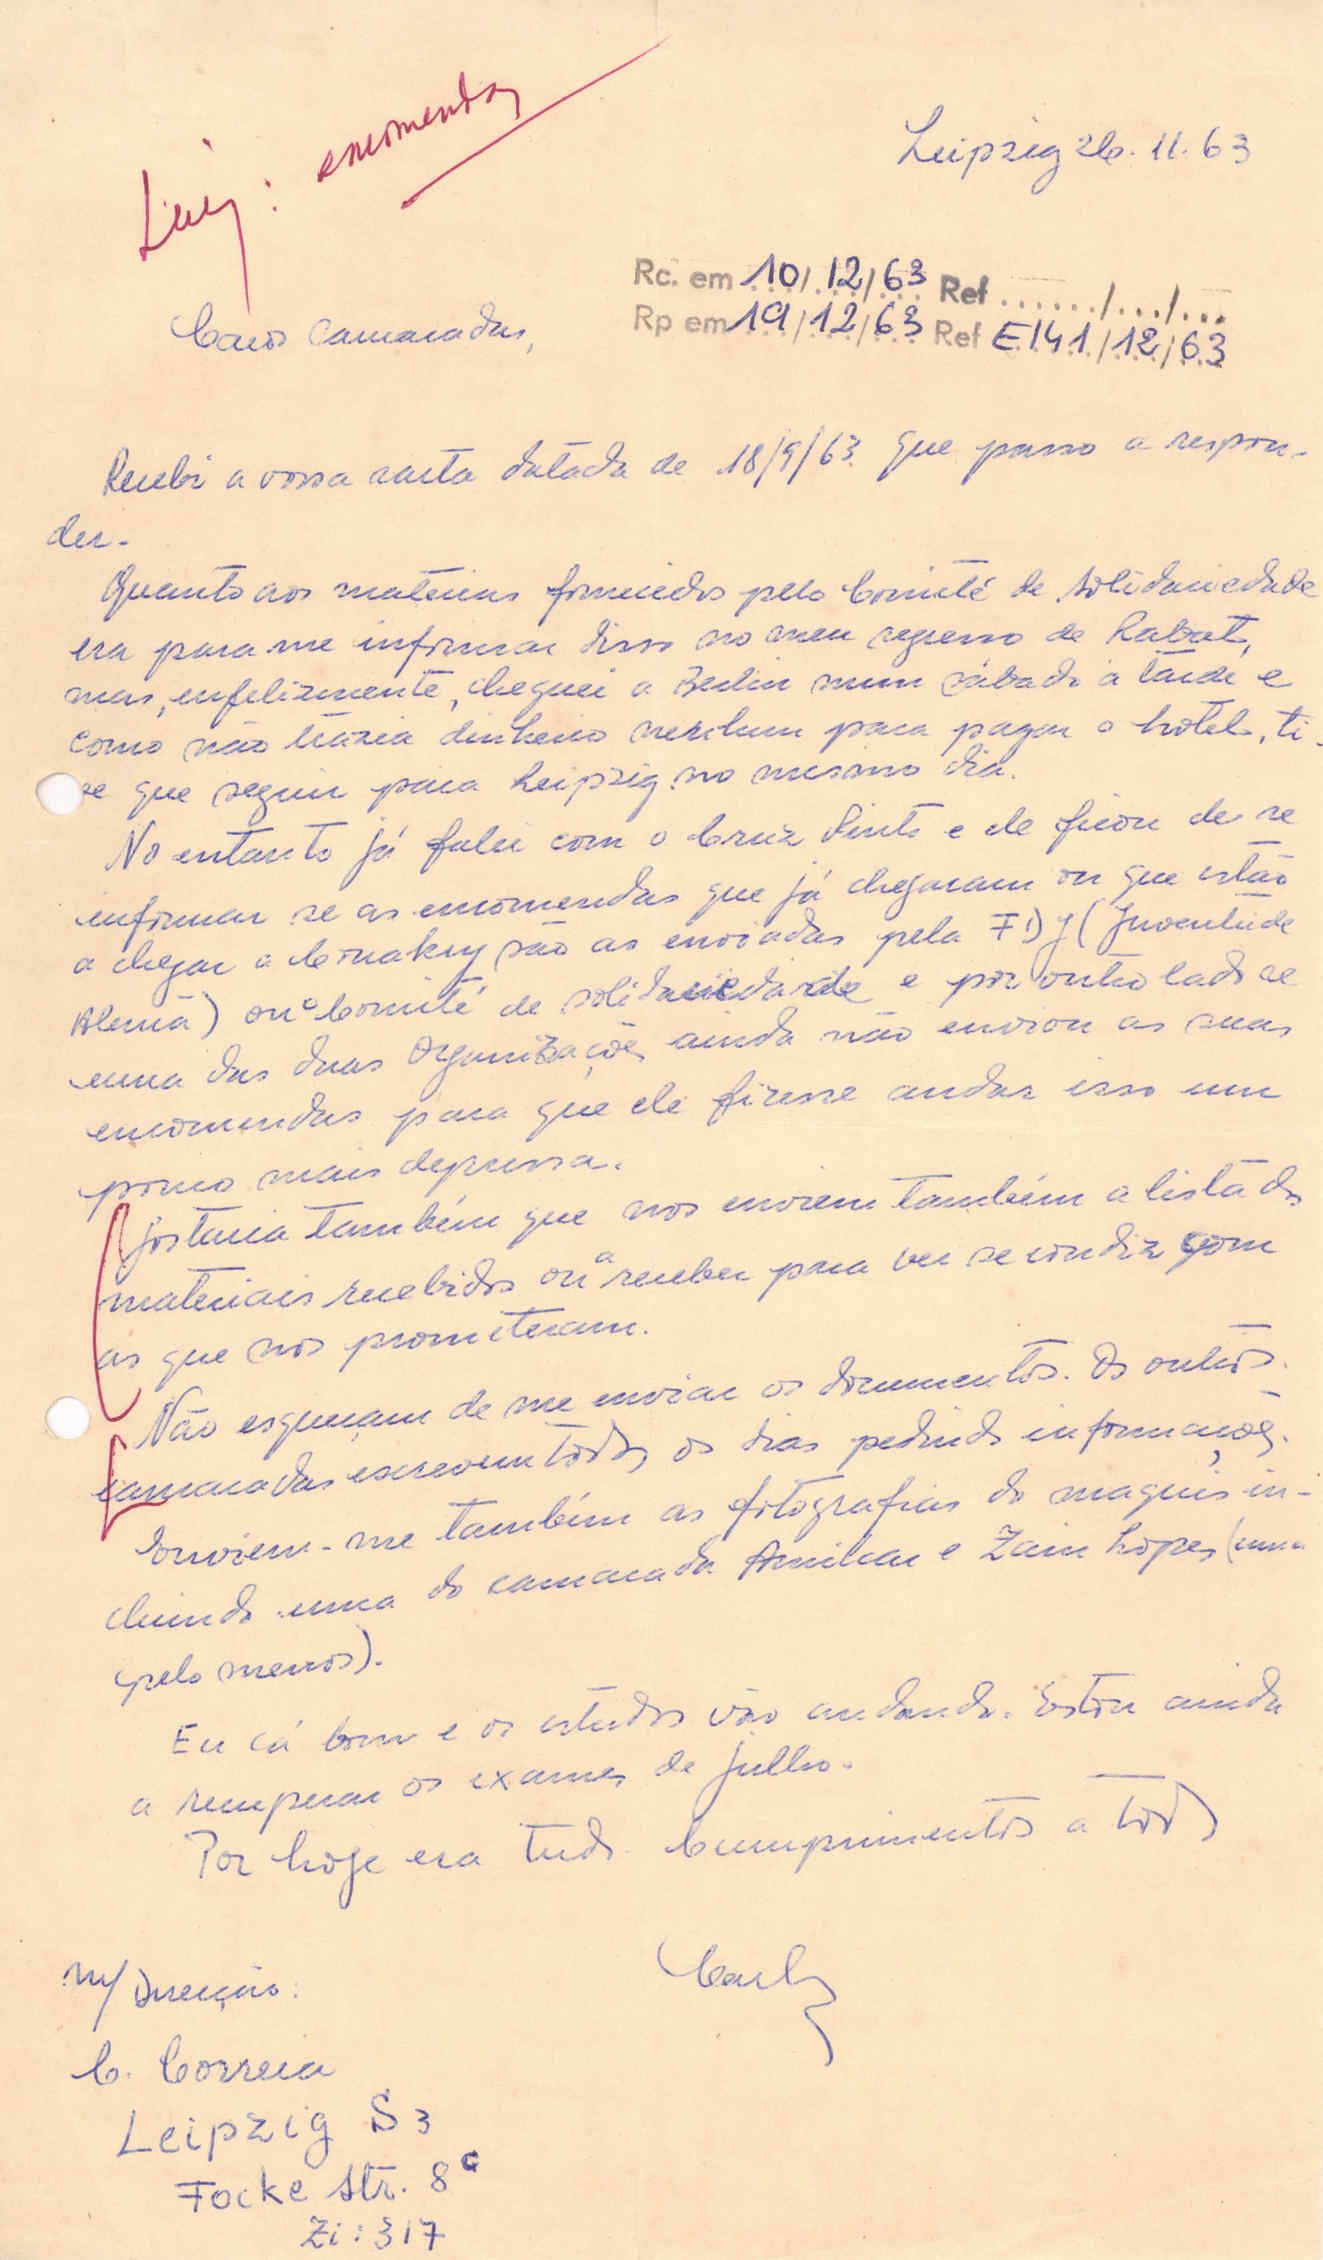 Luiz: encomendas
Leipzig 26.11.63
Rc. em 10/12/63 Ref ....../.../...
Rp em 19/12/63 Ref E141/12/63
Caros Camaradas,
Recebi a vossa carta datada de 18/9/63 que passo a respon-
der.
Quanto aos materias fornecidos pelo Comité de Solidariedade
era para me informar disso no meu regresso de Rabat,
mas, enfelizmente, cheguei a Berlin num sábado à tarde e
como não trazia dinheiro nenhum para pagar o hotel, ti-
ve que seguir para Leipzig no mesmo dia.
No entanto já falei com o Cruz Pinto e ele ficou de se
informar se as encomendas que já chegaram ou que estão
a chegar a Conakry são as enviadas pela FDJ (Juventude
Alemã) ou o Comité de solidariedade e por outro lado se
uma das duas Organizações ainda não enviou as suas
encomendas para que ele fizesse andar isso um
pouco mais depressa.
Gostaria também que nos enviem também a lista dos
materiais recebidos ou a receber para ver se condiz com
as que nos prometeram.
Não esqueçam de me enviar os documentos. Os outros
camaradas escrevem todos os dias pedindo informações.
Enviem-me também as fotografias do maquis in-
cluindo uma do camarada Amilcar e Zain Lopes (uma
pelo menos).
Eu cá bom e os estudos vão andando. Estou ainda
a recuperar os exames de Julho.
Por hoje era tudo. Cumprimentos a todos
Carlos
m/ Direcção:
C. Correia
Leipzig S3
Focke Str. 8c
Zi: 317